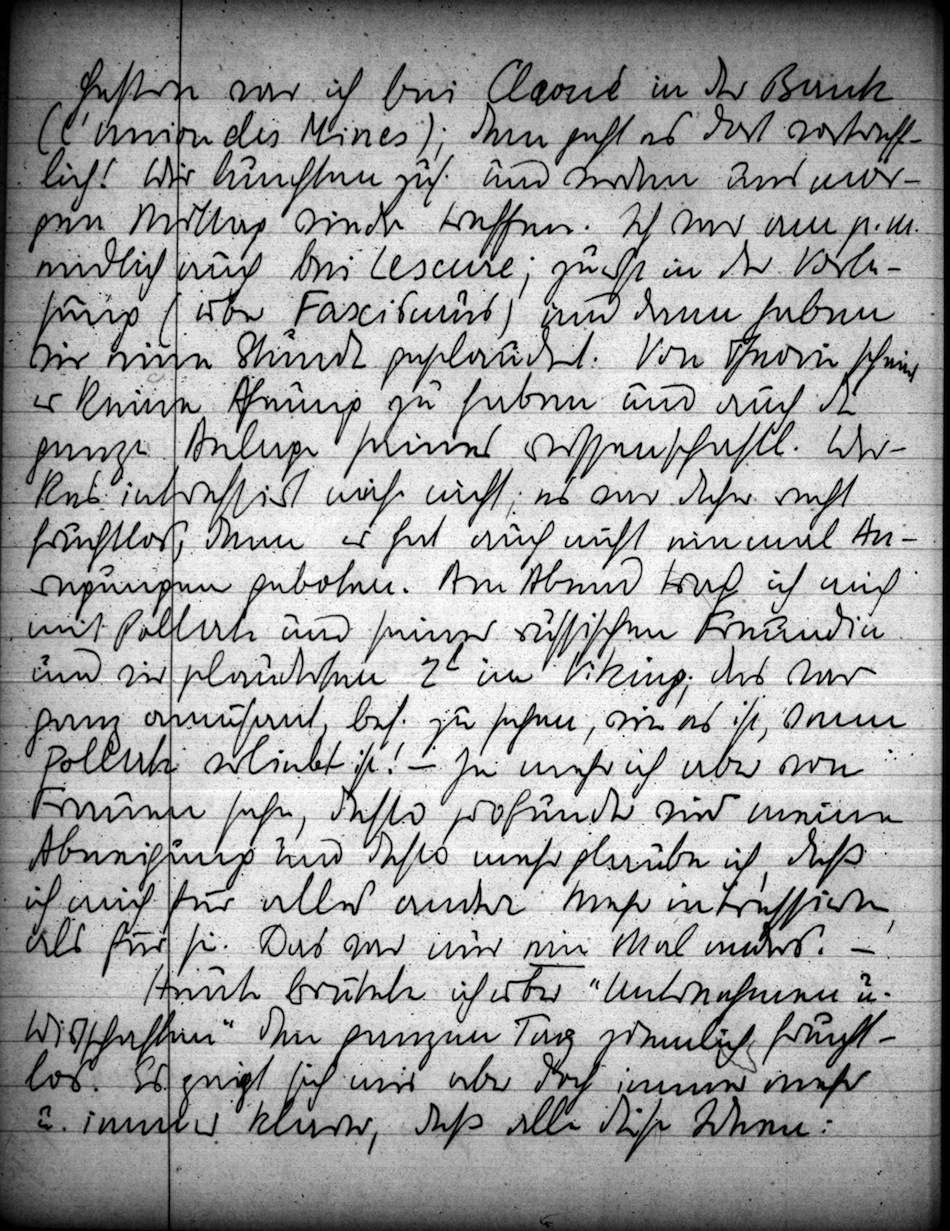 Gestern war ich bei Claoué in der Bank
(L'union des Mines); dem geht es dort vortreff-
lich! Wir lunchten zus. und werden uns mor-
gen Mittag wieder treffen. Ich war am p.m.
endlich auch bei Lescure; zuerst in der Vorle-
sung (über Faxismus) und dann haben
wir eine Stunde geplaudert. Von Theorie scheint
er keine Ahnung zu haben und auch die
ganze Anlage seines wissenschaftl. Wer-
kes interessiert mich nicht; es war daher recht
fruchtlos, denn er hat auch nicht einmal An-
regungen geboten. Am Abend traf ich mich
mit Pollak und seiner russischen Freundin
und wir plauderten 2h im Viking; das war
ganz amusant, bes. zu sehen, wie es ist, wenn
Pollak verliebt ist! – Je mehr ich aber von
Frauen sehe, desto profunder wird meine
Abneigung und desto mehr glaube ich, daß
ich mich für alles andere mehr interessiere,
als für sie. Das war nur ein Mal anders. –
Heute brütete ich über "Unternehmen u.
Wirtschaften" den ganzen Tag ziemlich frucht-
los. Es zeigt sich mir aber doch immer mehr
u. immer klarer, daß alle diese Ideen: